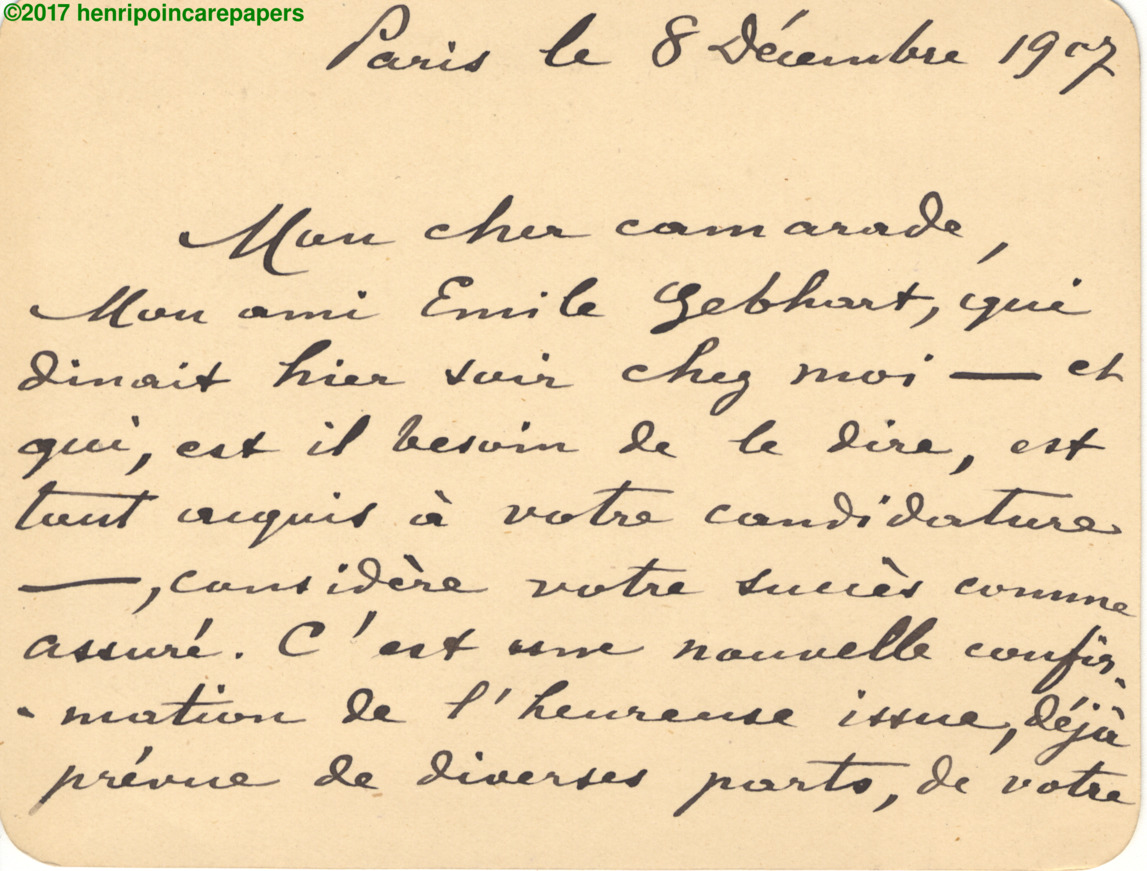 ©2017 henripoincarepapers
Paris le 8 Décembre 1907
Mon cher camarade,
Mon ami Emile Gebhart, qui
dinait hier soir chez moi — et
qui, est il besoin de le dire, est
tout acquis à votre candidature
—, considère votre succès comme
assuré. C'est une nouvelle confir-
-mation de l'heureuse issue, déjà
prévue de diverses parts, de votre